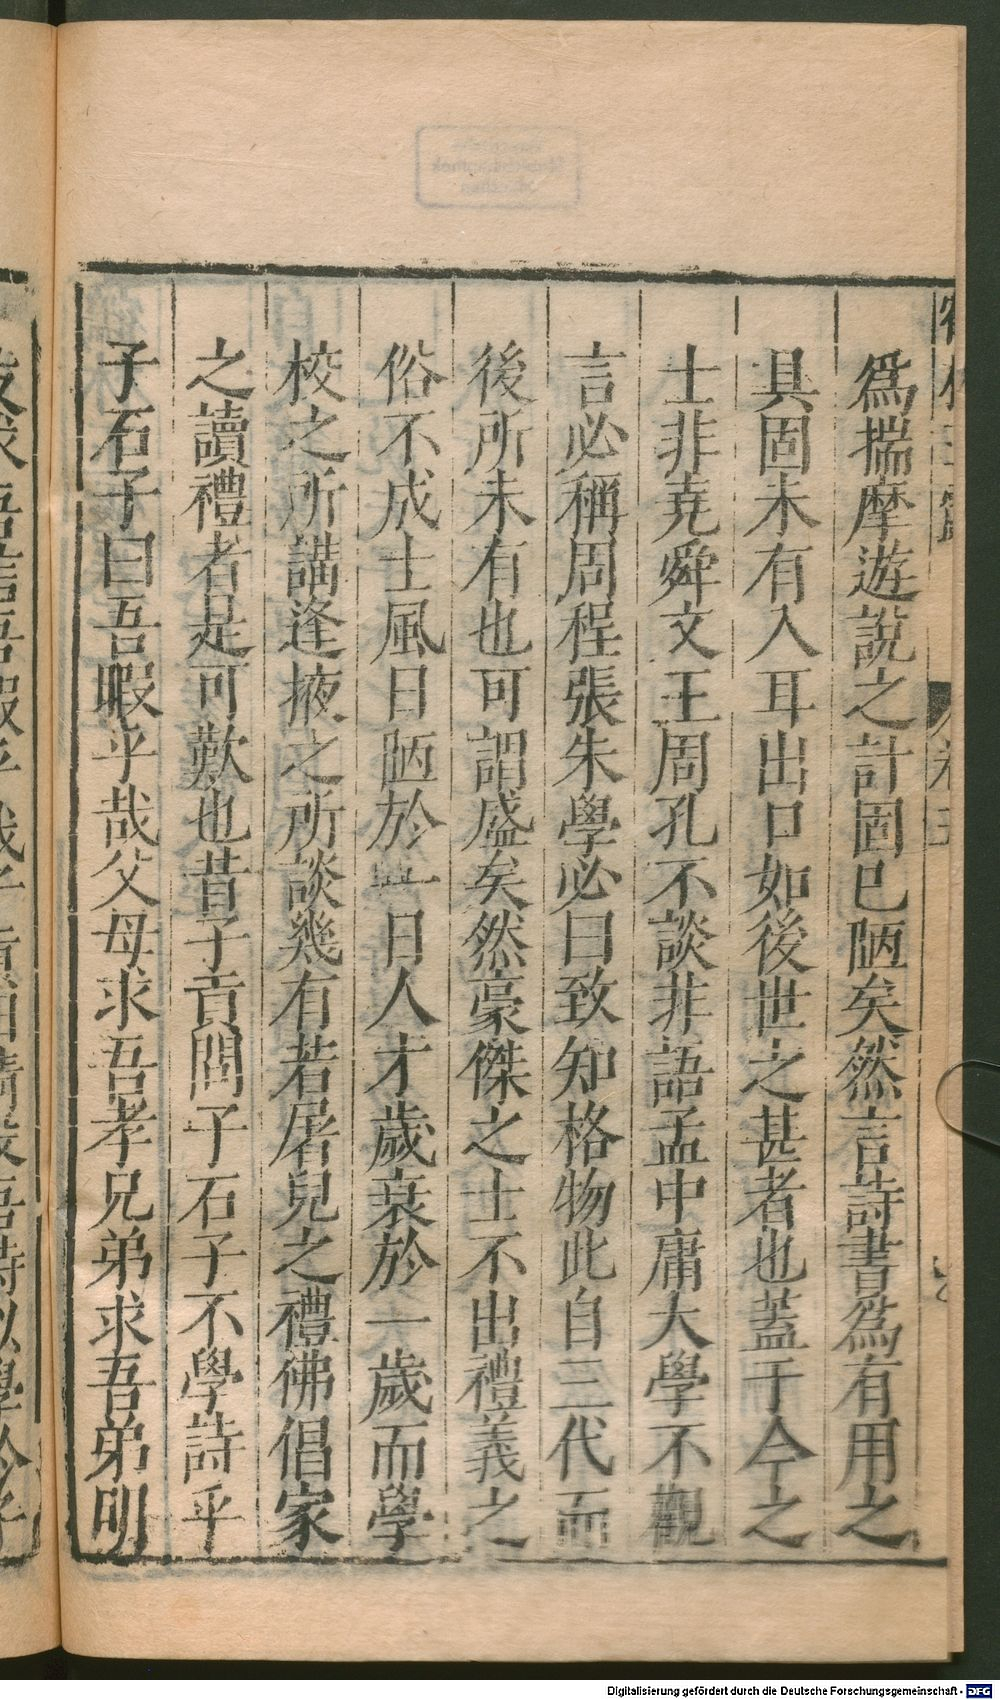 爲揣摩遊說之計固已陋矣然言詩書爲有用之
具固未有入耳出口如後世之甚者也蓋于今之
士非堯舜文王周孔不談非語孟中庸大學不觀
言必稱周程張朱學必曰致知格物此自三代而
後所未有也可謂盛矣然豪傑之士不出禮義之
俗不成士風日陋於一日人才歲衰於一歲而學
校之所講逢掖之所談幾有若屠兒之禮佛倡家
之讀禮者是可歎也昔子貢問子石子不學詩乎
子石子曰吾暇乎哉父母求吾孝兄弟求吾弟朋
Digitalisierung gefördert durch die Deutsche Forschungsgemeinschaft - DFG